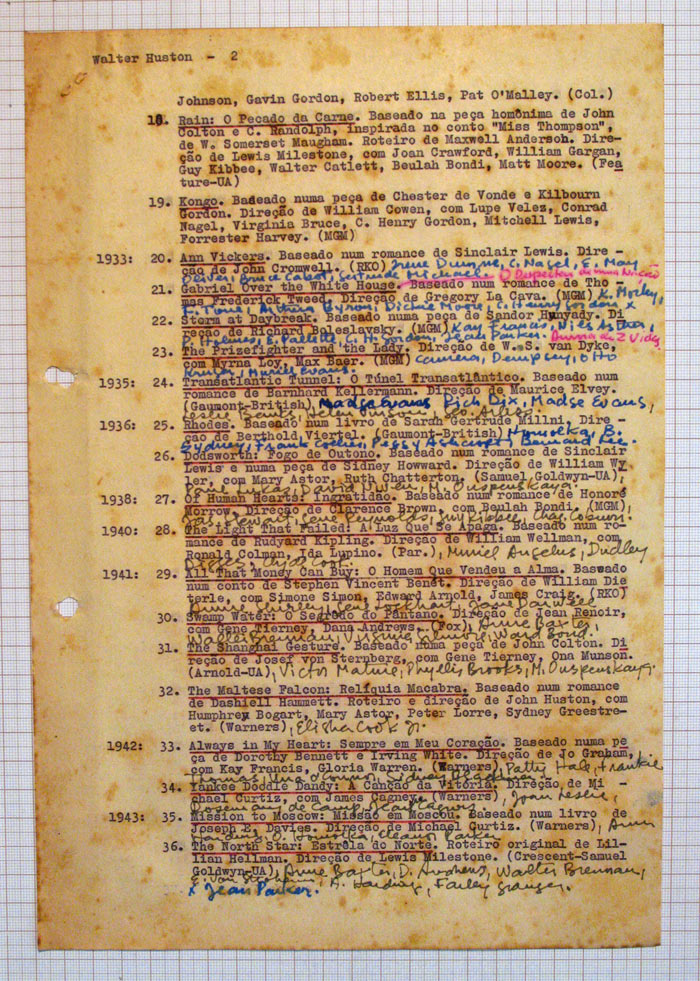 Walter Huston - 2
Johnson, Gavin Gordon, Robert Ellis, Pat O'Malley. (Col.)
18. Rain: O Pecado da Carne. Baseado na peça homônima de John
Colton e C. Randolph, inspirada no conto "Miss Thompson",
de W. Somerset Maugham. Roteiro de Maxwell Anderson. Dire-
ção de Lewis Milestone, com Joan Crawford, William Gargan,
Guy Kibbee, Walter Catlett, Beulah Bondi, Matt Moore. (Fea
ture-UA)
19. Kongo. Baseado numa peça de Chester de Vonde e Kilbourn
Gordon. Direção de William Cowen, com Lupe Velez, Conrad
Nagel, Virginia Bruce, C. Henry Gordon, Mitchell Lewis,
Forrester Harvey. (MGM)
1933: 20. Ann Vickers. Baseado num romance de Sinclair Lewis. Dire -
ção de John Cromwell. (RKO) Irene Dunne, C. Nagel, E. May
Oliver, Bruce Cabot, Gertrude Michael. O Despertar de uma Nação
21. Gabriel Over the White House. Baseado num romance de Tho -
mas Frederick Tweed. Direção de Gregory La Cava. (MGM) K. Morley,
F. Tone, Arthur Byron, Dickie Moore, C. Henry Gordon x
22. Storm at Daybreak. Baseado numa peça de Sandor Hunyady. Di
reção de Richard Boleslavsky. (MGM) Kay Francis, Nils Asther,
P. Holmes, E. Pallette, C. H. Gordon, Jean Parker. Duma de 2 Vidas
23. The Prizefighter and the Lady. Direção de W.S. van Dyke,
com Myrna Loy, Max Baer. (MGM) Carnera, Dempsey, Otto
Kruger, Muriel Evans.
1935: 24. Transatlantic Tunnel: O Túnel Transatlântico. Baseado num
romance de Barnhard Kellermann. Direção de Maurice Elvey.
(Gaumont-British) Madge Evans Rich. Dix, Madge Evans,
Leslie Banks, Helen Vinson, Geo. Arliss.
1936: 25. Rhodes. Baseado num livro de Sarah Gertrude Millni. Dire -
ção de Berthold Viertel. (Gaumont-British) Homolka, B.
Sydney, Frank Cellier, Peggy Ashcroft, Bernard Lee.
26. Dodsworth: Fogo de Outono. Baseado num romance de Sinclair
Lewis e numa peça de Sidney Howward. Direção de William Wy
ler, com Mary Astor, Ruth Chatterton, (Samuel Goldwyn-UA),
Paul Lukas, David Niven, M. Ouspenskaya.
1938: 27. Of Human Hearts: Ingratidão. Baseado num romance de Honoré
Morrow. Direção de Clarence Brown, com Beulah Bondi. (MGM),
Jas. Stewart, Gene Reynolds, Guy Kibbee, Chas. Coburn.
1940: 28. The Light That Failed: A Luz Que Se Apaga. Baseado num ro-
mance de Rudyard Kipling. Direção de William Wellman, com
Ronald Colman, Ida Lupino. (Par.), Muriel Angelus, Dudley
Digges,
1941: 29. All That Money Can Buy: O Homem Que Vendeu a Alma. Baswado
num conto de Stephen Vincent Benét. Direção de William Die
terle, com Simone Simon, Edward Arnold, James Craig. (RKO)
Anne Shirley, Gene Lockhart, Jane Darwell
30. Swamp Water: O Segredo do Pântano. Direção de Jean Renoir,
com Gene Tierney, Dana Andrews. (Fox), Anne Baxter,
Walter Brennan, Virginia Gilmore, Ward Bond.
31. The Shanghai Gesture. Baseado numa peça de John Colton. Di
reção de Josef von Sternberg, com Gene Tierney, Ona Munson.
(Arnold-UA), Victor Mature, Phyllis Brooks, M. Ouspenskaya.
32. The Maltese Falcon: Relíquia Macabra. Baseado num romance
de Dashiell Hammett. Roteiro e direção de John Huston, com
Humphrey Bogart, Mary Astor, Peter Lorre, Sydney Greestre-
et. (Warners), Elisha Cook Jr.
1942: 33. Always in My Heart: Sempre em Meu Coração. Baseado numa pe
ça de Dorothy Bennett e Irving White. Direção de Jo Graham,
com Kay Francis, Gloria Warren. (Warners), Patty Hale, Frankie
Thomas, Una O'Connor, Sidney Blackmer
34. Yankee Doddle Dandy: A Canção da Vitória. Direção de Mi -
chael Curtiz, com James Cagney. (Warners), Joan Leslie,
Rosemary de Camp,
1943: 35. Mission to Moscow: Missão em Moscou. Baseado num livro de
Joseph E. Davies. Direção de Michael Curtiz. (Warners), Ann
Harding, O. Homolka, Eleanor Parker.
36. The North Star: Estrêla do Norte. Roteiro original de Lil-
lian Hellman. Direção de Lewis Milestone. (Crescent-Samuel
Goldwyn-UA), Anne Baxter, D. Andrews, Walter Brennan,
E. Von Stroheim, A. Harding, Farley Granger.
x Jean Parker.